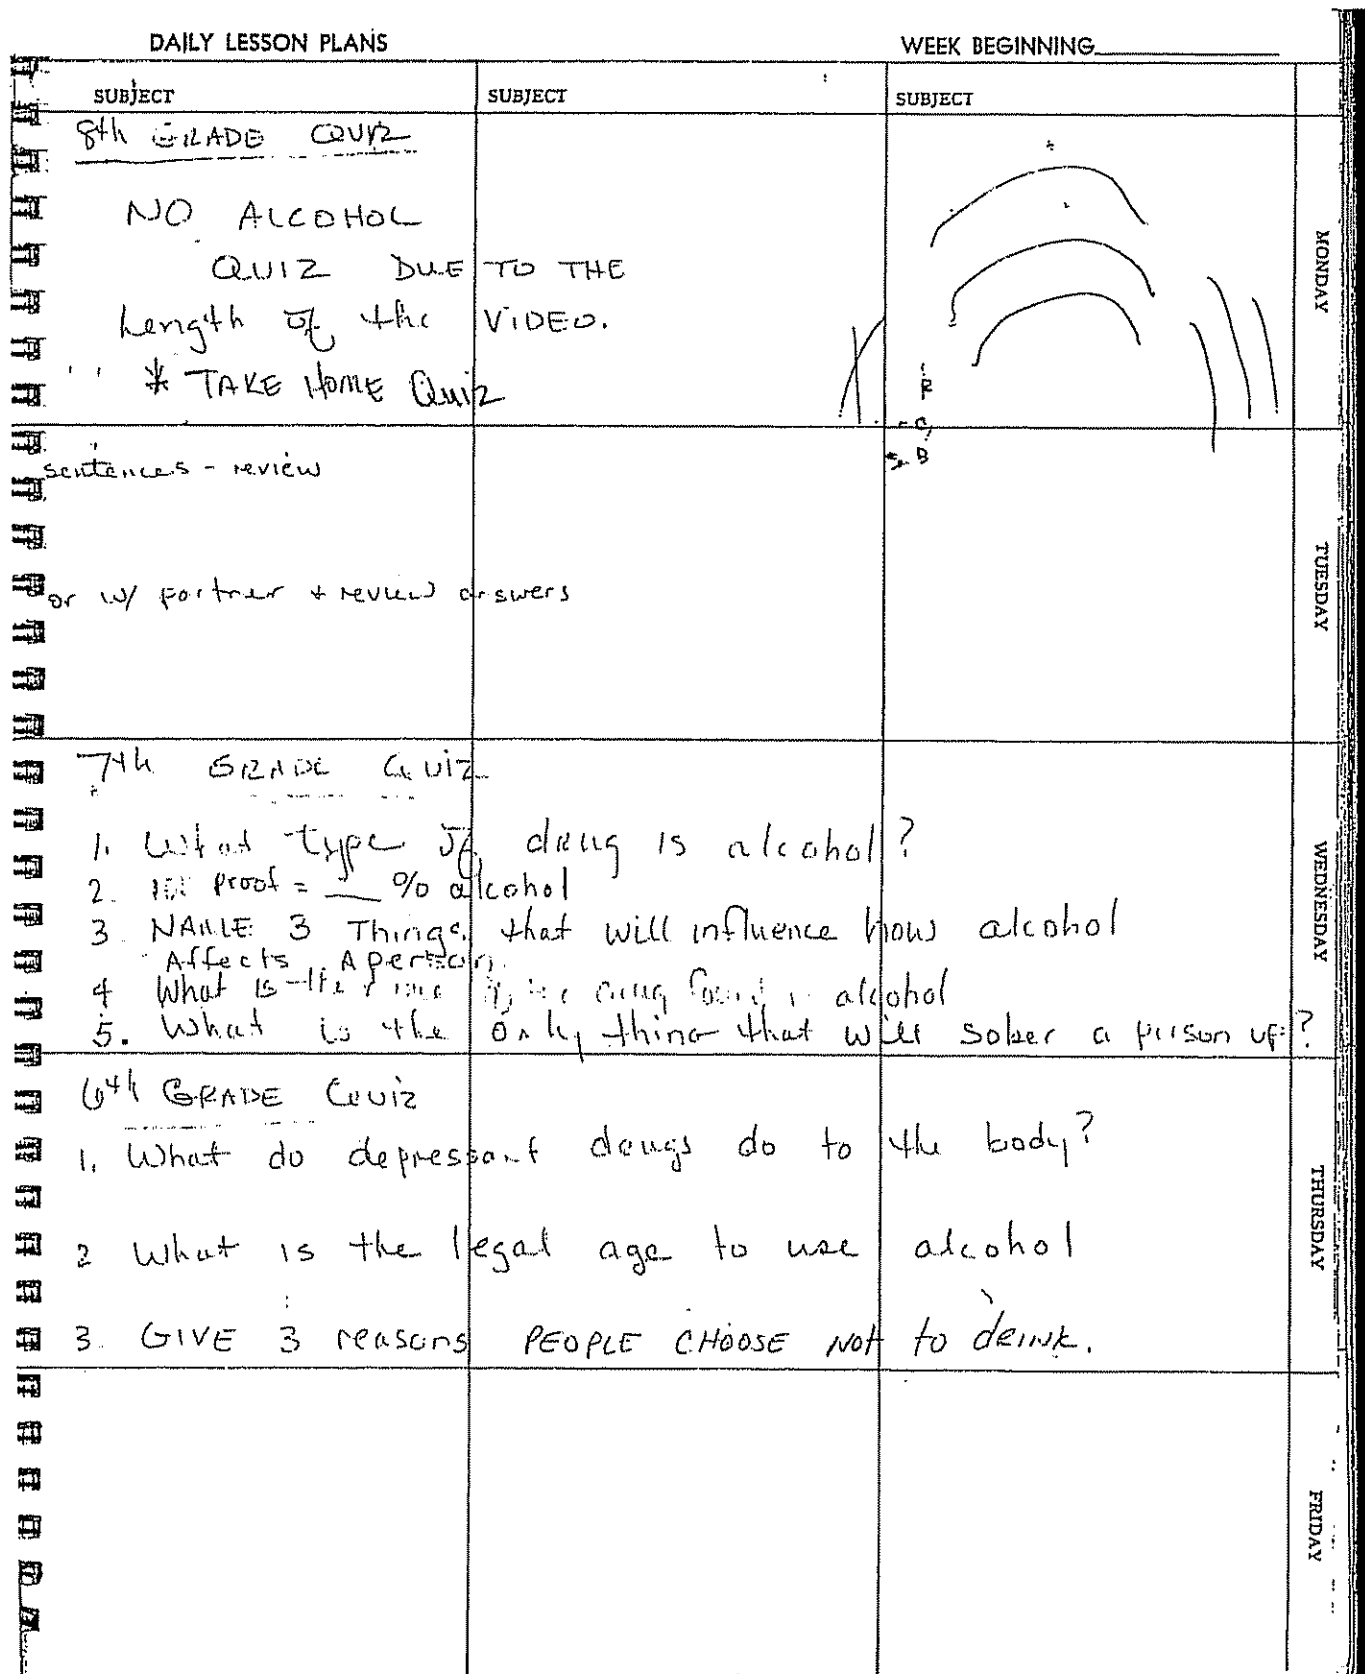 DAILY LESSON PLANS
WEEK BEGINNING
SUBJECT SUBJECT SUBJECT
8th GRADE QUIZ
NO ALCOHOL
QUIZ DUE TO THE
Length of the VIDEO.
* TAKE HOME Quiz
R
C
B
MONDAY
sentences - review
or w/ partner + review answers
TUESDAY
7th GRADE QUIZ
1. What type of drug is alcohol?
2. proof = __ % alcohol
3 NAME 3 Things that will influence how alcohol
Affects A person.
4 What is the drug found in alcohol
5. What is the only thing that will sober a person up?
WEDNESDAY
6th GRADE Quiz
1. What do depressant drugs do to the body?
2 What is the legal age to use alcohol
3. GIVE 3 reasons PEOPLE CHOOSE NOT to drink.
THURSDAY
FRIDAY